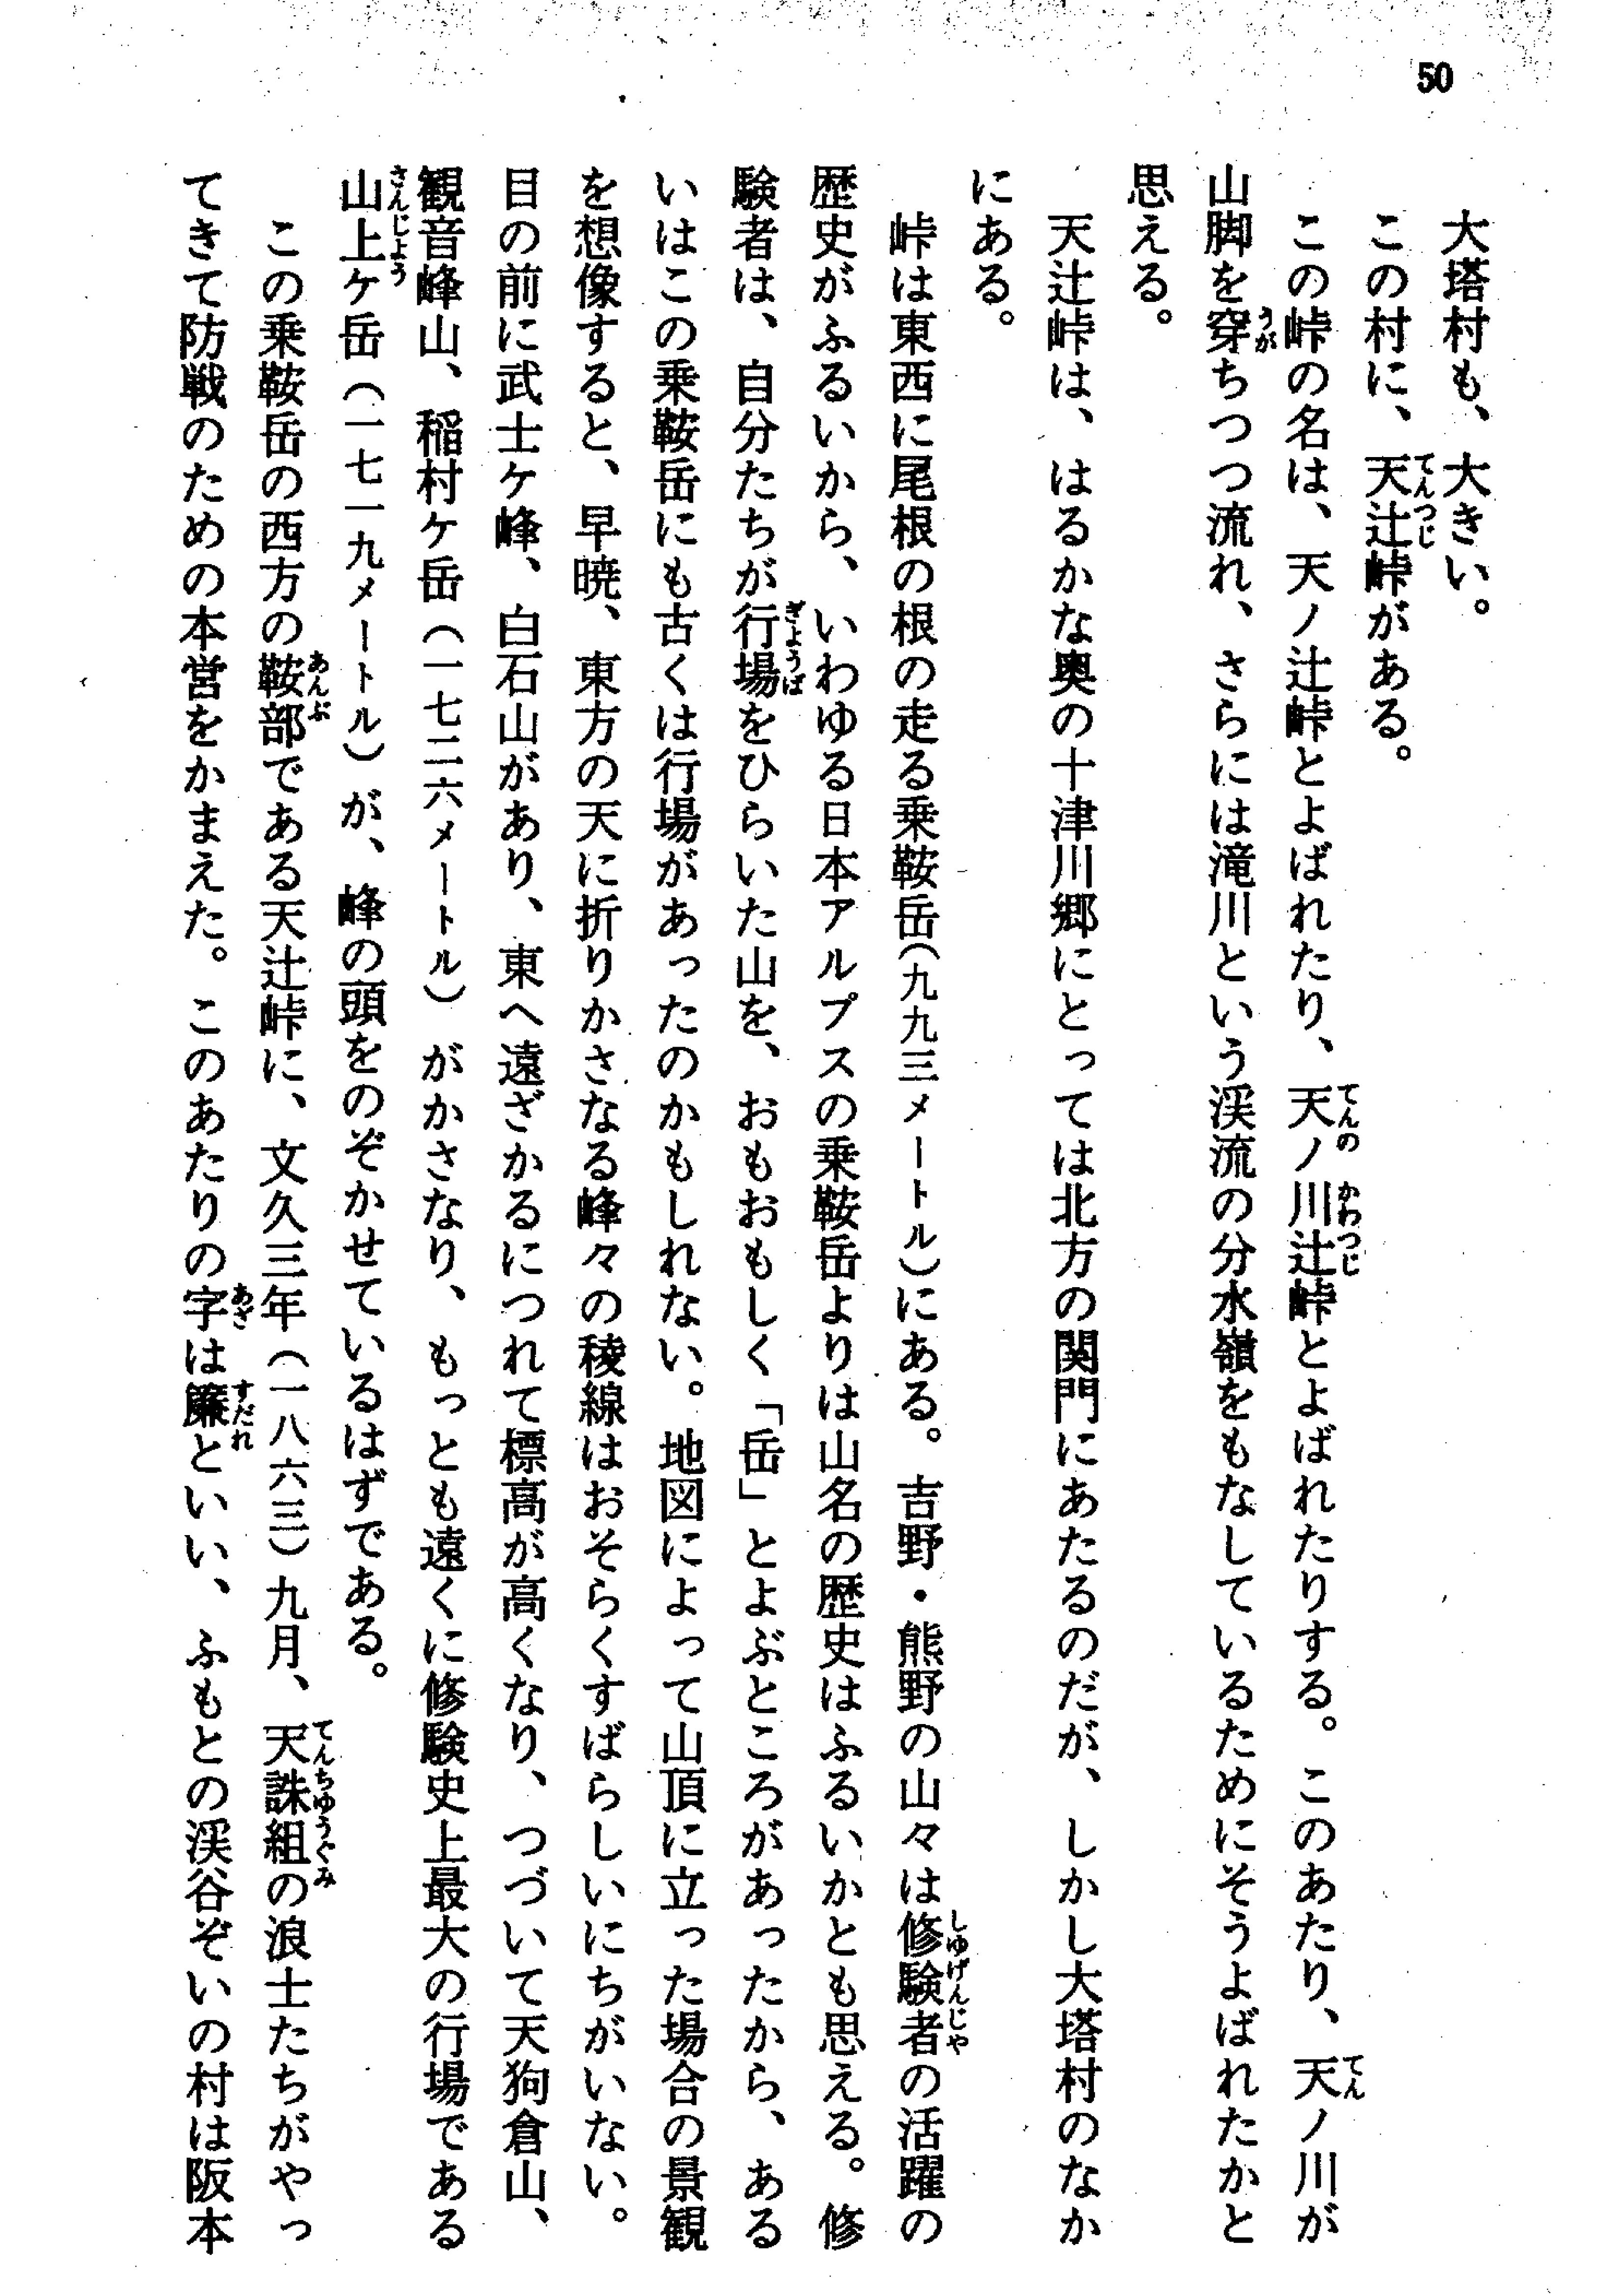 50
大塔村も、大きい。
この村に、天辻峠がある。
この峠の名は、天ノ辻峠とよばれたり、天ノ川辻峠とよばれたりする。このあたり、天ノ川が
山脚を穿ちつつ流れ、さらには滝川という渓流の分水嶺をもなしているためにそうよばれたかと
思える。
天辻峠は、はるかな奥の十津川郷にとっては北方の関門にあたるのだが、しかし大塔村のなか
にある。
峠は東西に尾根の根の走る乗鞍岳(九九三メートル)にある。吉野・熊野の山々は修験者の活躍の
歴史がふるいから、いわゆる日本アルプスの乗鞍岳よりは山名の歴史はふるいかとも思える。修
験者は、自分たちが行場をひらいた山を、おもおもしく「岳」とよぶところがあったから、ある
いはこの乗鞍岳にも古くは行場があったのかもしれない。地図によって山頂に立った場合の景観
を想像すると、早暁、東方の天に折りかさなる峰々の稜線はおそらくすばらしいにちがいない。
目の前に武士ケ峰、白石山があり、東へ遠ざかるにつれて標高が高くなり、つづいて天狗倉山、
観音峰山、稲村ケ岳(一七二六メートル)がかさなり、もっとも遠くに修験史上最大の行場である
山上ケ岳(一七一九メートル)が、峰の頭をのぞかせているはずである。
この乗鞍岳の西方の鞍部である天辻峠に、文久三年(一八六三)九月、天誅組の浪士たちがやっ
てきて防戦のための本営をかまえた。このあたりの字は簾といい、ふもとの渓谷ぞいの村は阪本